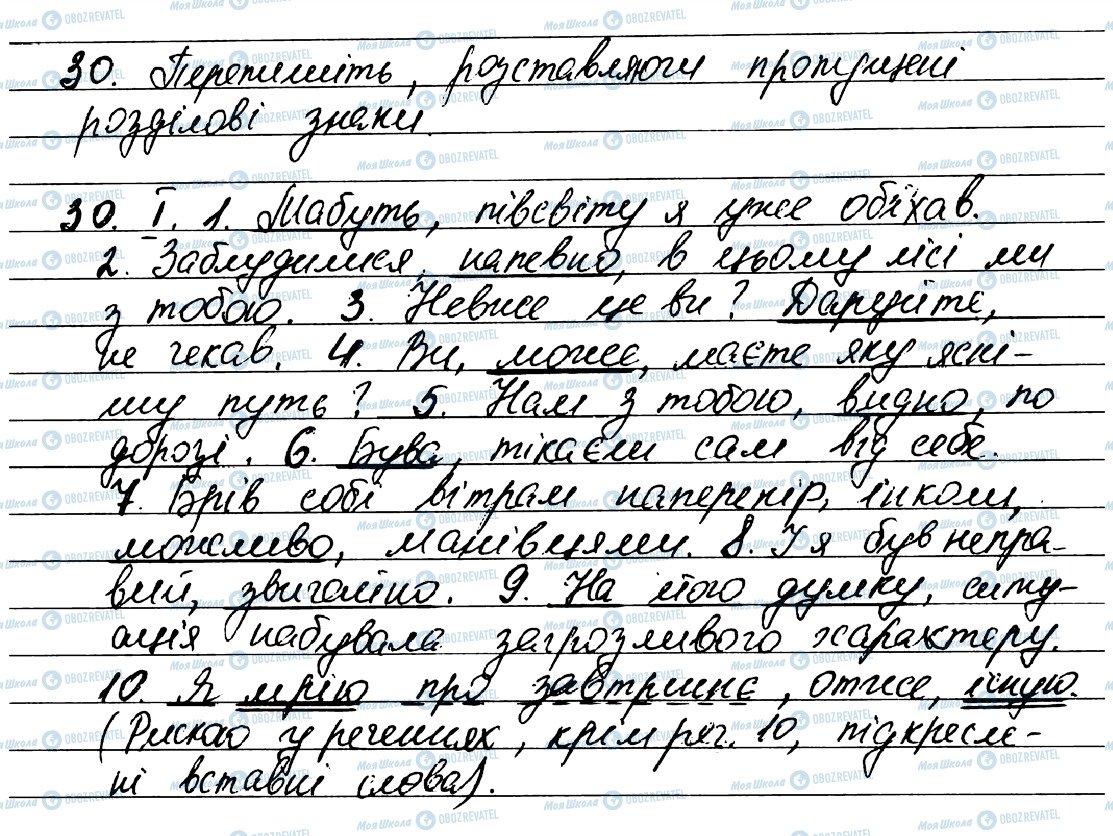 30. Перепишіть, розставляючи пропущені
розділові знаки.
30. I. 1. Мабуть, півсвіту я уже об'їхав.
2. Заблудилися, напевно, в цьому лісі ми
з тобою. 3. Невже це ви? Даруйте,
не чекав. 4. Ви, може, маєте яку ясні-
шу путь? 5. Нам з тобою, видно, по
дорозі. 6. Бува, тікаєш сам від себе.
7. Брів собі вітрам наперекір, інколи,
можливо, манівцями. 8. І я був непра-
вий, звичайно. 9. На його думку, ситу-
ація набувала загрозливого характеру.
10. Я мрію про завтрашнє, отже, існую.
(Рискою у реченнях, крім реч. 10, підкресле-
ні вставні слова).